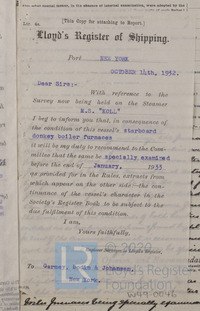 [This Copy for attaching to Report.]
Lloyd's Register of Shipping.
Port NEW YORK
OCTOBER 14th, 1932.
Dear Sirs:-
With reference to the
Survey now being held on the Steamer
M.S. "KOLL"
I beg to inform you that, in consequence of
the condition of this vessel's starboard
donkey boiler furnaces
it will be my duty to recommend to the Com-
mittee that the same be specially examined
before the end of January, 1933
as provided for in the Rules, extracts from
which appear on the other side—the con-
tinuance of the vessel's character in the
Society's Register Book to be subject to the
due fulfilment of this condition.
I am,
Yours faithfully,
To
& Johansen,
New York.
© 2020
Lloyd's Register
Foundation
Boiler Furnaces being specially examined